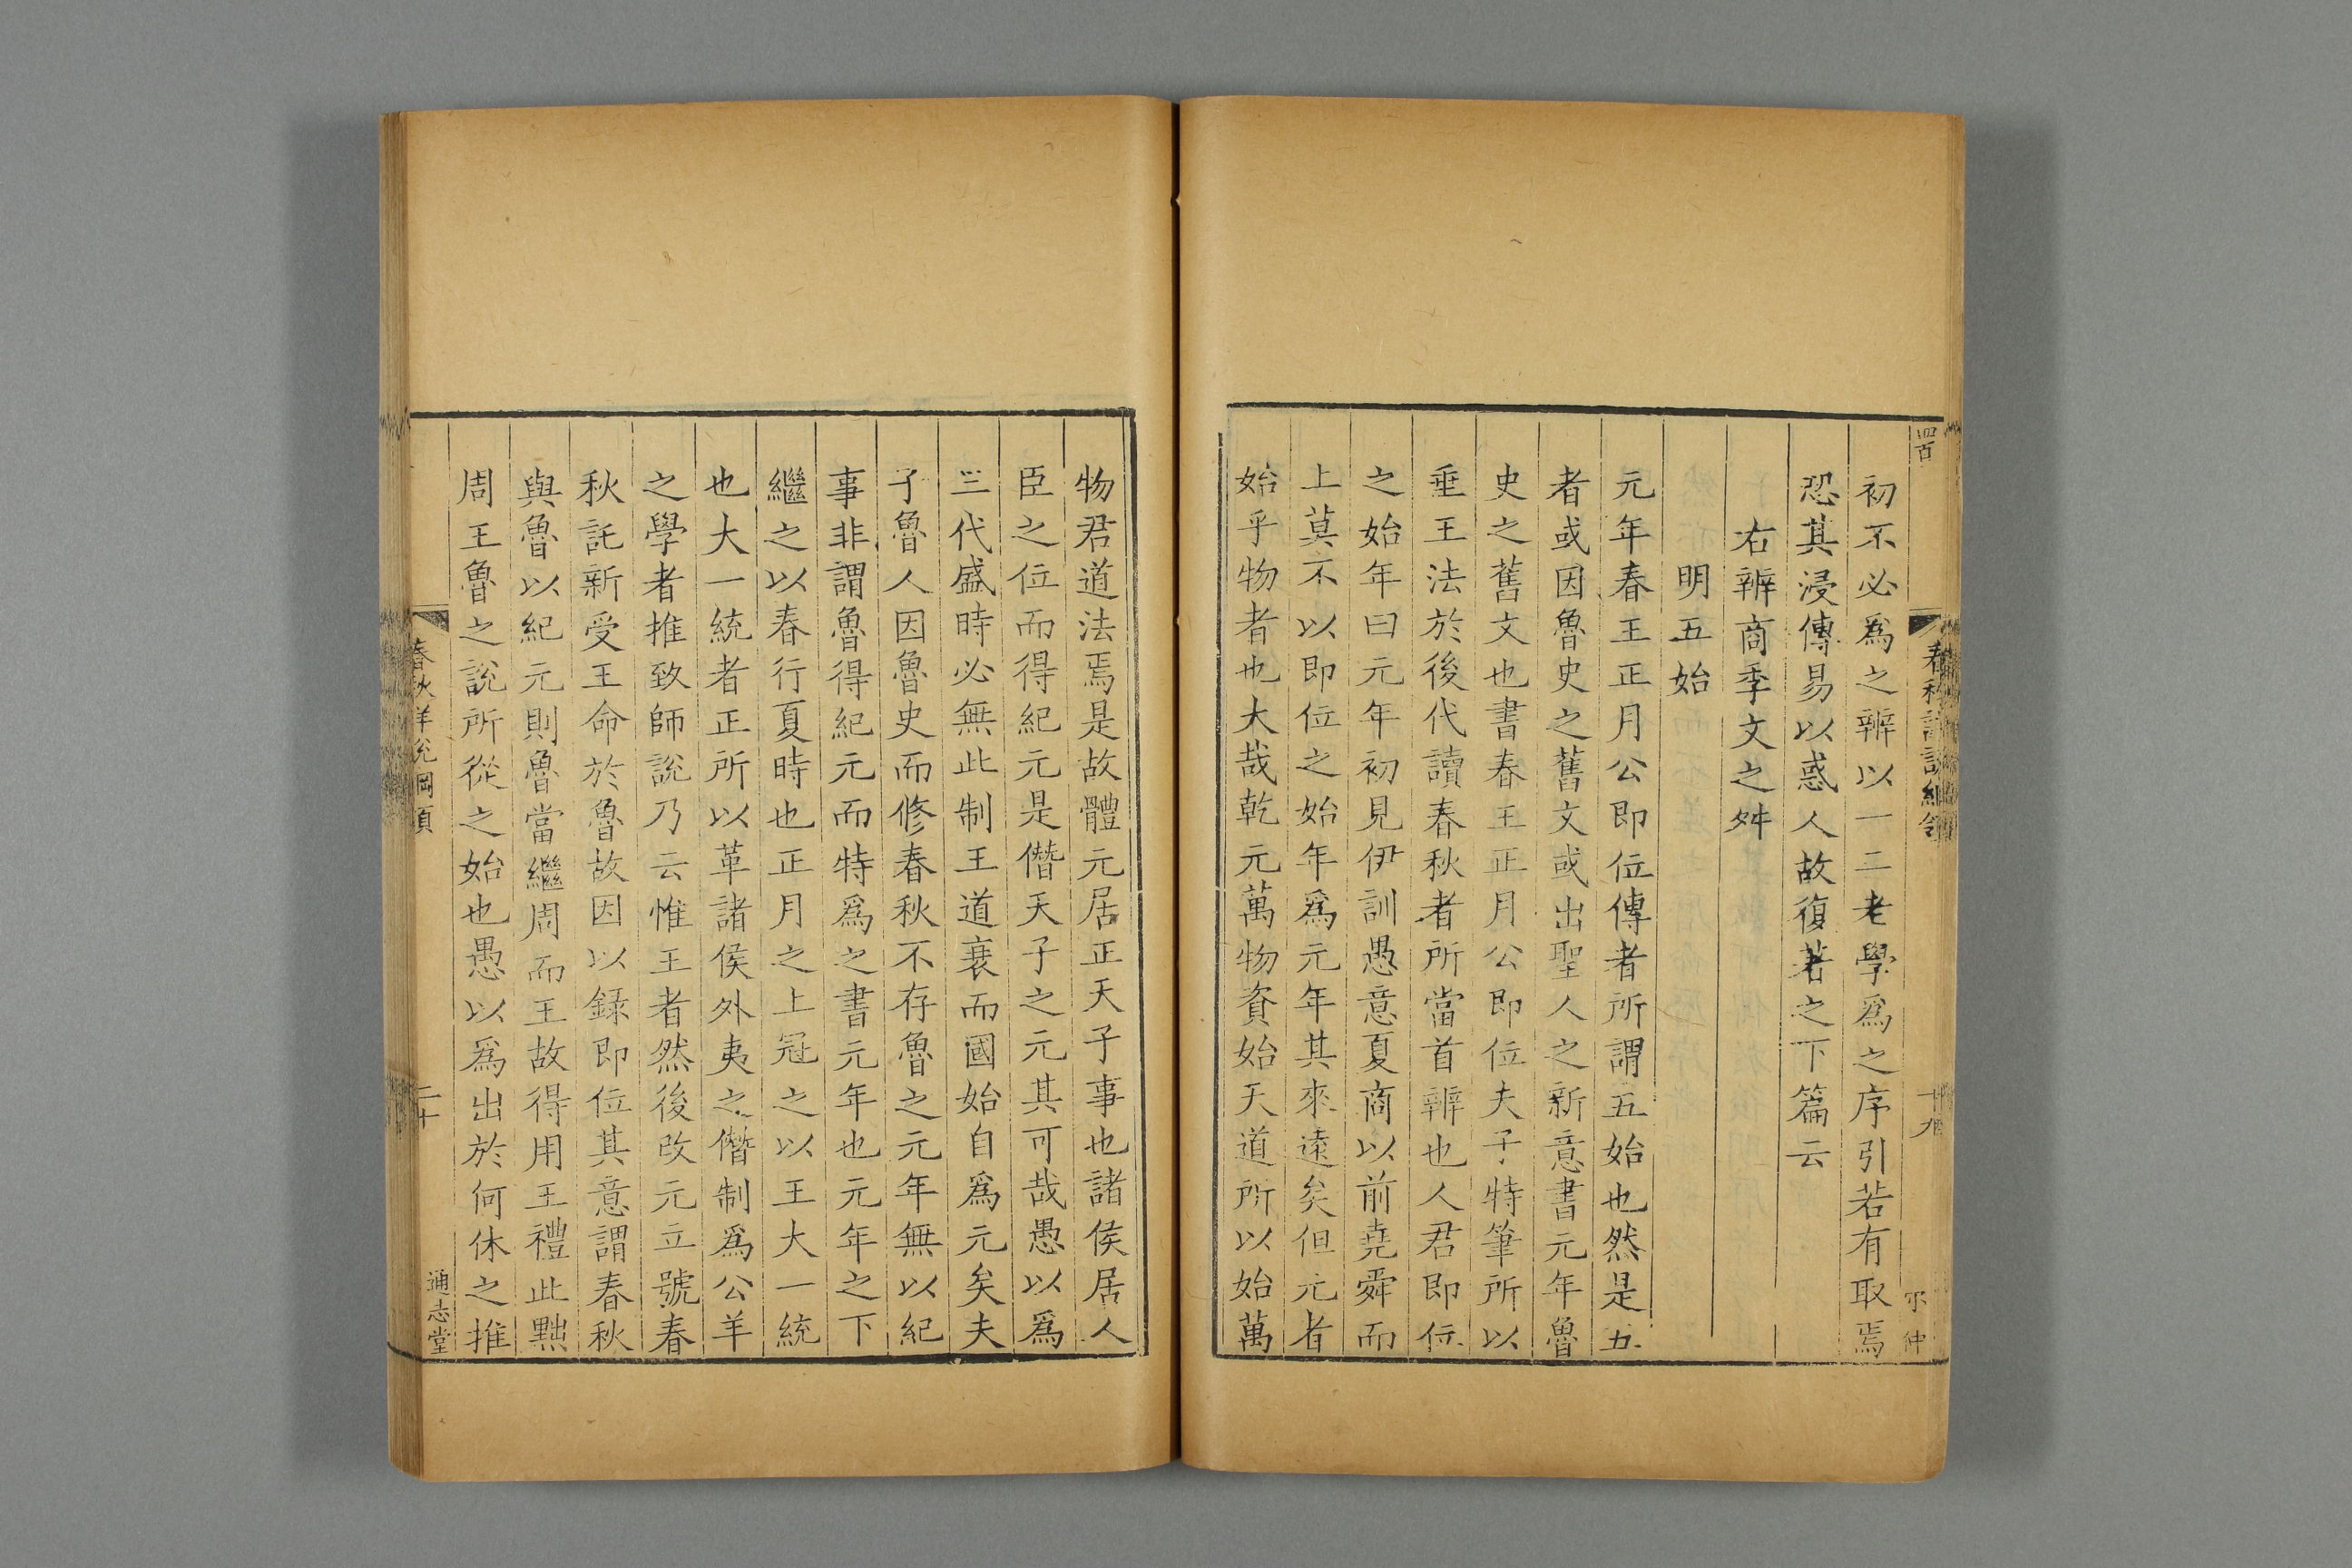 四百
春秋詳說綱領
十九
仲
初不必爲之辨以一二老學爲之序引若有取焉
恐其浸傳易以惑人故復著之下篇云
右辨商季文之舛
明五始
元年春王正月公即位傳者所謂五始也然是五
者或因魯史之舊文或出聖人之新意書元年魯
史之舊文也書春王正月公即位夫子特筆所以
垂王法於後代讀春秋者所當首辨也人君即位
之始年曰元年初見伊訓愚意夏商以前堯舜而
上莫不以即位之始年爲元年其來遠矣但元者
始乎物者也大哉乾元萬物資始天道所以始萬
物君道法焉是故體元居正天子事也諸侯居人
臣之位而得紀元是僭天子之元其可哉愚以爲
三代盛時必無此制王道衰而國始自爲元矣夫
子魯人因魯史而修春秋不存魯之元年無以紀
事非謂魯得紀元而特爲之書元年也元年之下
繼之以春行夏時也正月之上冠之以王大一統
也大一統者正所以革諸侯外夷之僭制爲公羊
之學者推致師說乃云惟王者然後改元立號春
秋託新受王命於魯故因以錄即位其意謂春秋
與魯以紀元則魯當繼周而王故得用王禮此黜
周王魯之說所從之始也愚以爲出於何休之推
春秋詳說綱領
二十
通志堂